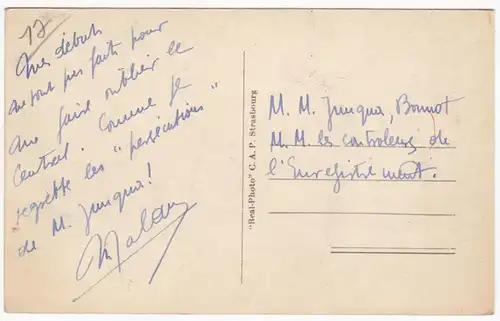 17
Mes débuts
ne sont pas faits pour
me faire oublier le
Central. Comme je
regrette les "persécutions"
de M. Junqua!
"Real-Photo" C. A. P. Strasbourg
M. M. Junqua, Bonnot
M. M. les controleurs de
l'Enregistrement.